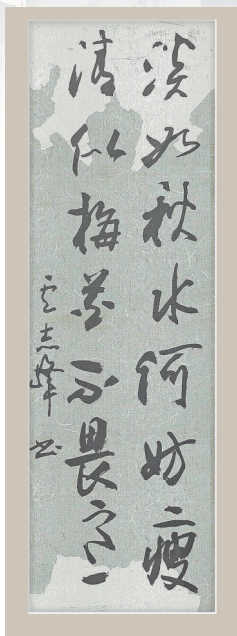 淡如秋水何妨瘦
清似梅花不畏寒
云志峰书